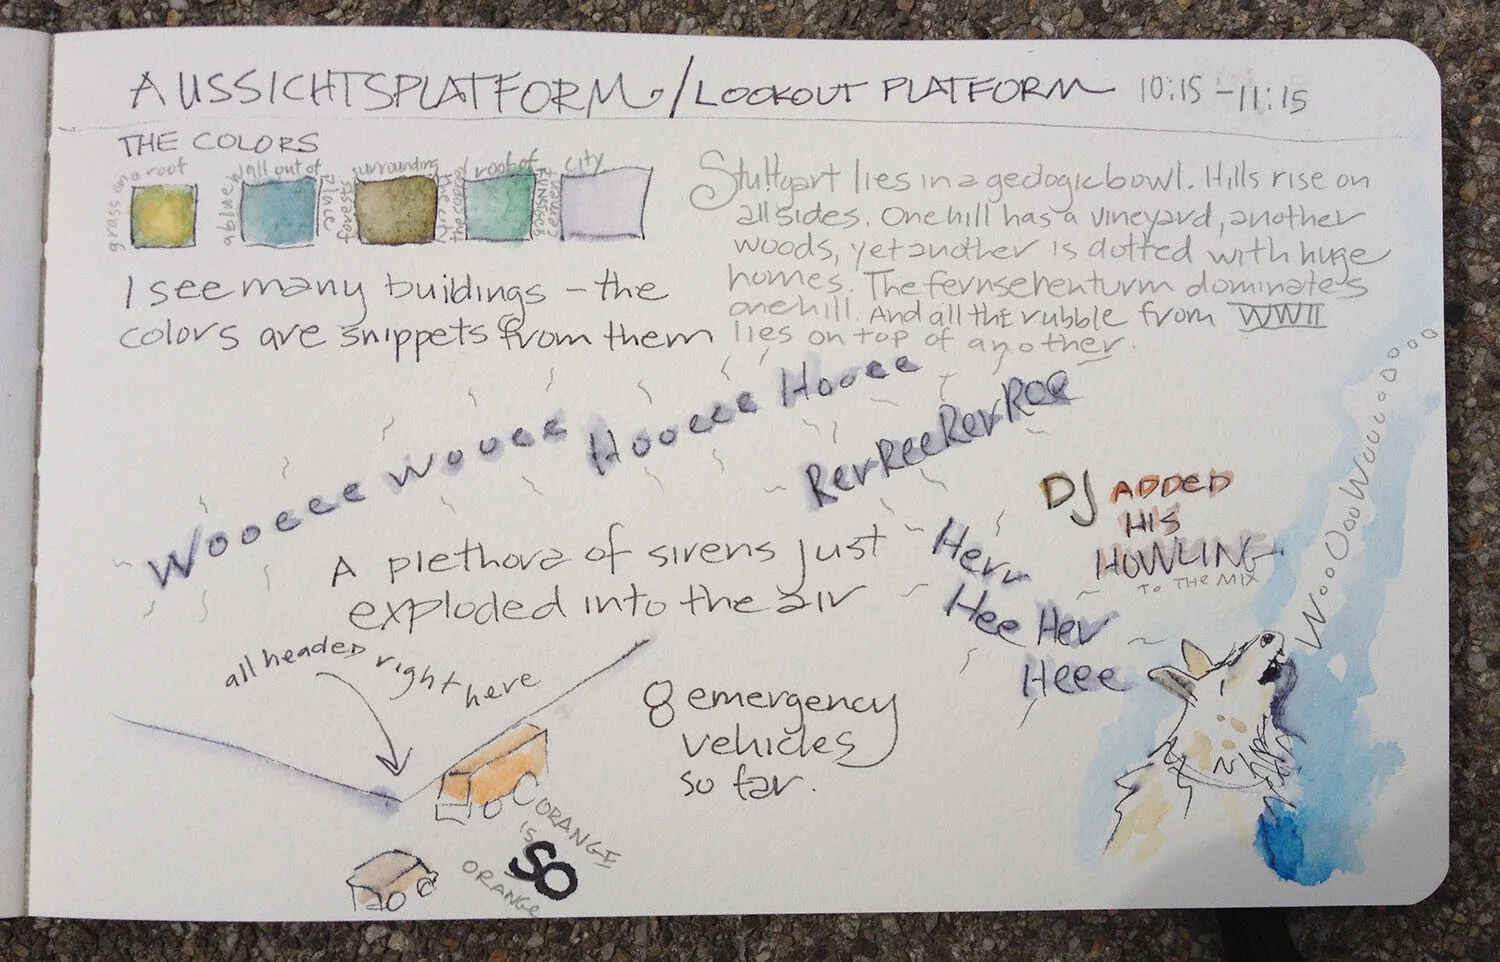 AUSSICHTSPLATFORM/LOOKOUT PLATFORM 10:15-11:15
THE COLORS
grass on a roof
a blue wall out of place
forests surrounding the city
the cool roof of
city
I see many buildings - the
colors are snippets from them
Stuttgart lies in a geologic bowl. Hills rise on
all sides. One hill has a vineyard, another
woods, yet another is dotted with huge
homes. The fernsehenturm dominates
one hill. And all the rubble from WWII
lies on top of another.
Wooeeee wouee Hooeeee Houee
RerReeRerRoe
Herr
Hee Her
Heee
A plethora of sirens just
exploded into the air
DJ ADDED
HIS
HOWLING
TO THE MIX
WoooOooWuuuooooooo
all headed right here
8 emergency
vehicles
so far.
ORANGE
is
SO
ORANGE